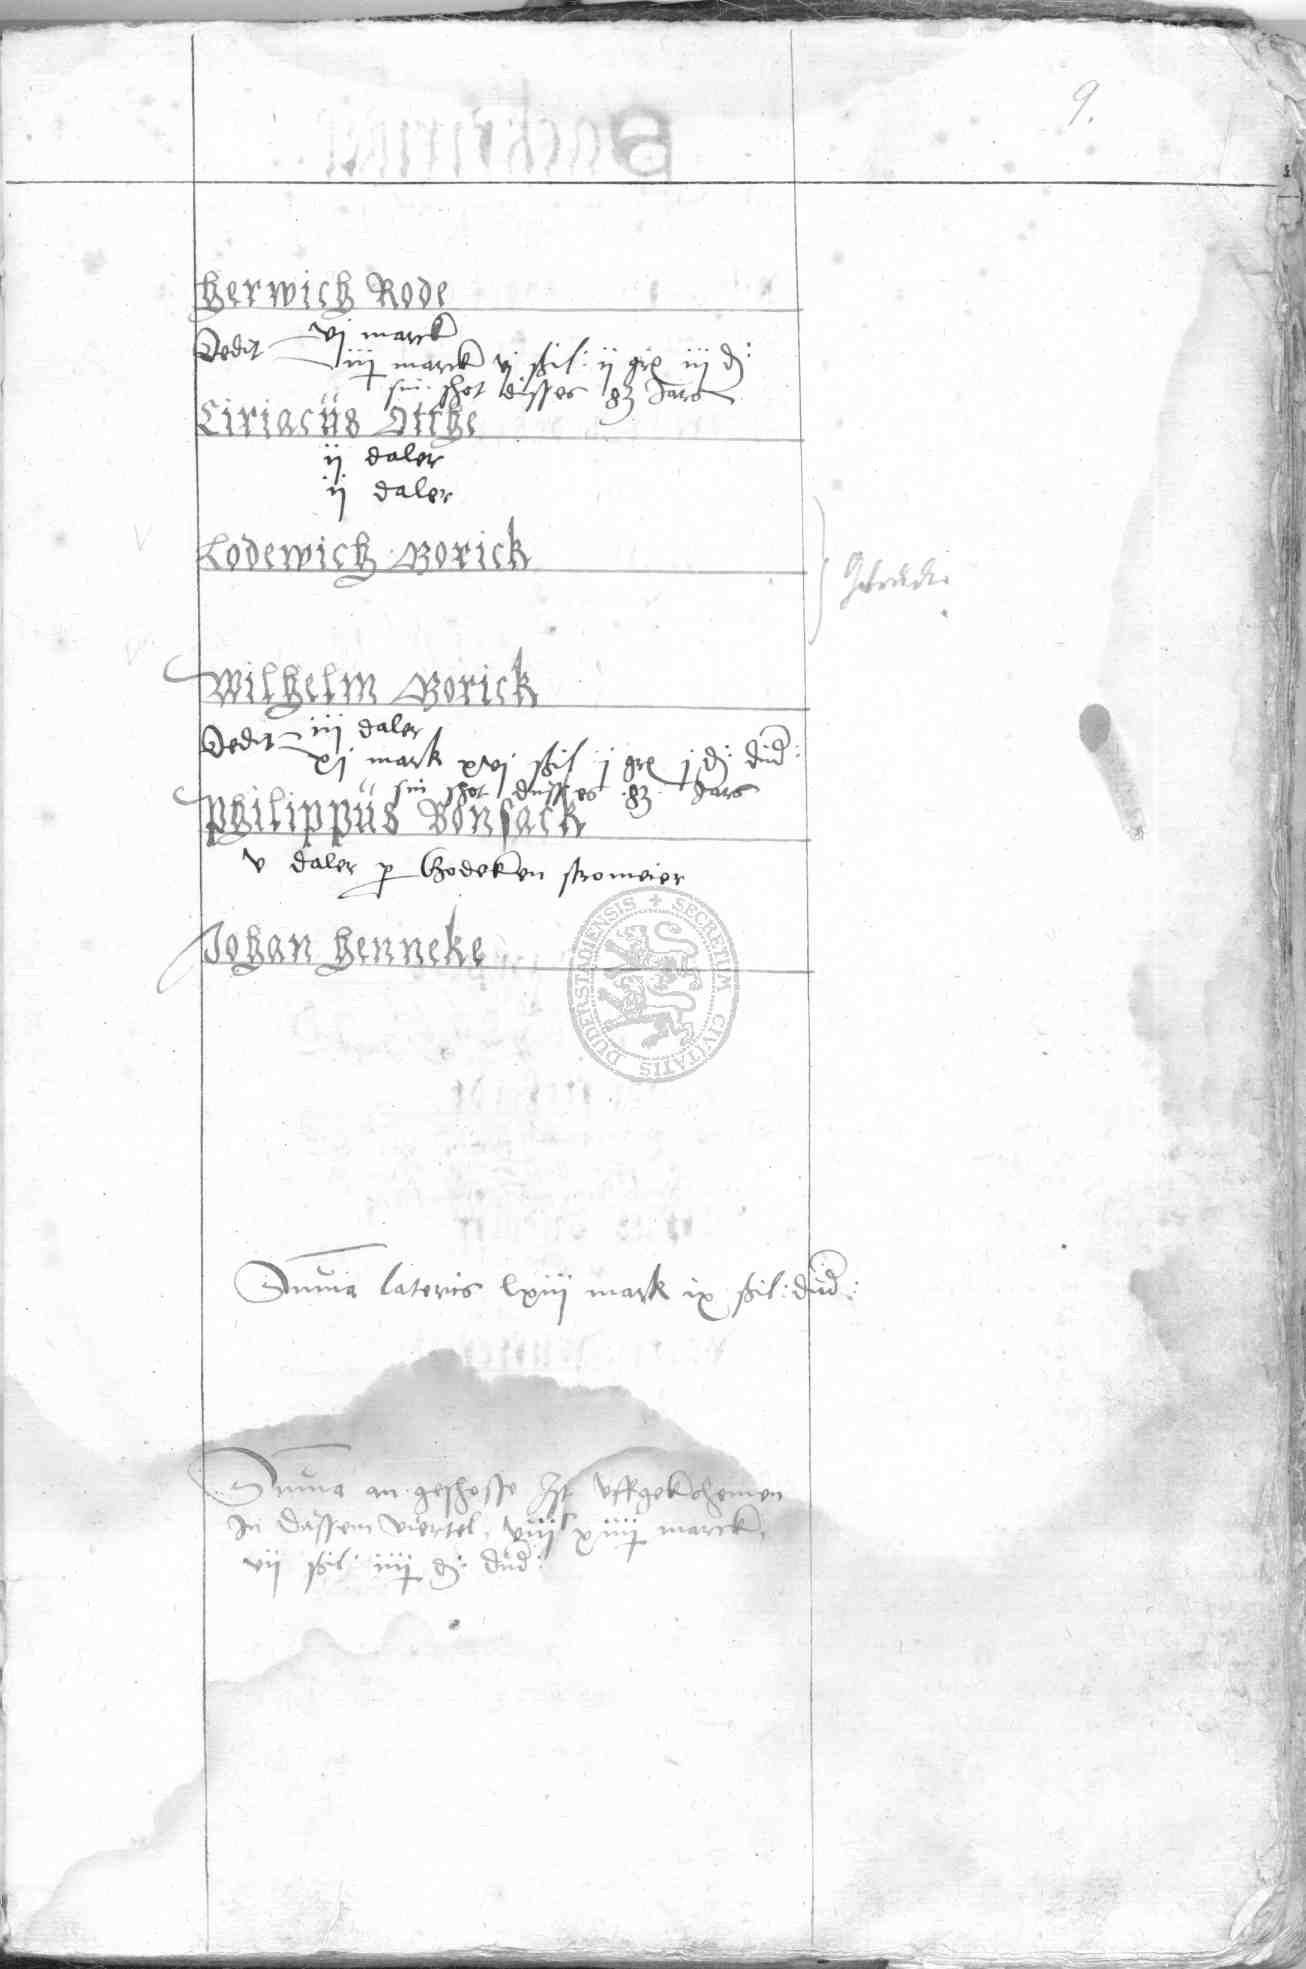 9.
Herwich Rode
Dedit vj marck
iiij marck vj ßil: ij gr iij d:
sin shot disses 83 Jars
Ciriacüs Ottke
ij daler
ij daler
Lodewich Borick
Wilhelm Borick
Dedit iij daler
xj mark xvj ßil j gr j d: dud:
sin shot disses 83 Jars
Philippüs Bonsack
v daler p Godeken stromeier
Johan Henneke
SECRETUM CIVITATIS DUDERSTADIENSIS
Suma lateris lxiij mark ix ßil: dud:
Suma an geschosse Ist uffgekohemen
In dussem viertel, viijc xiiij marck,
vij ßil: iiij d: dud: